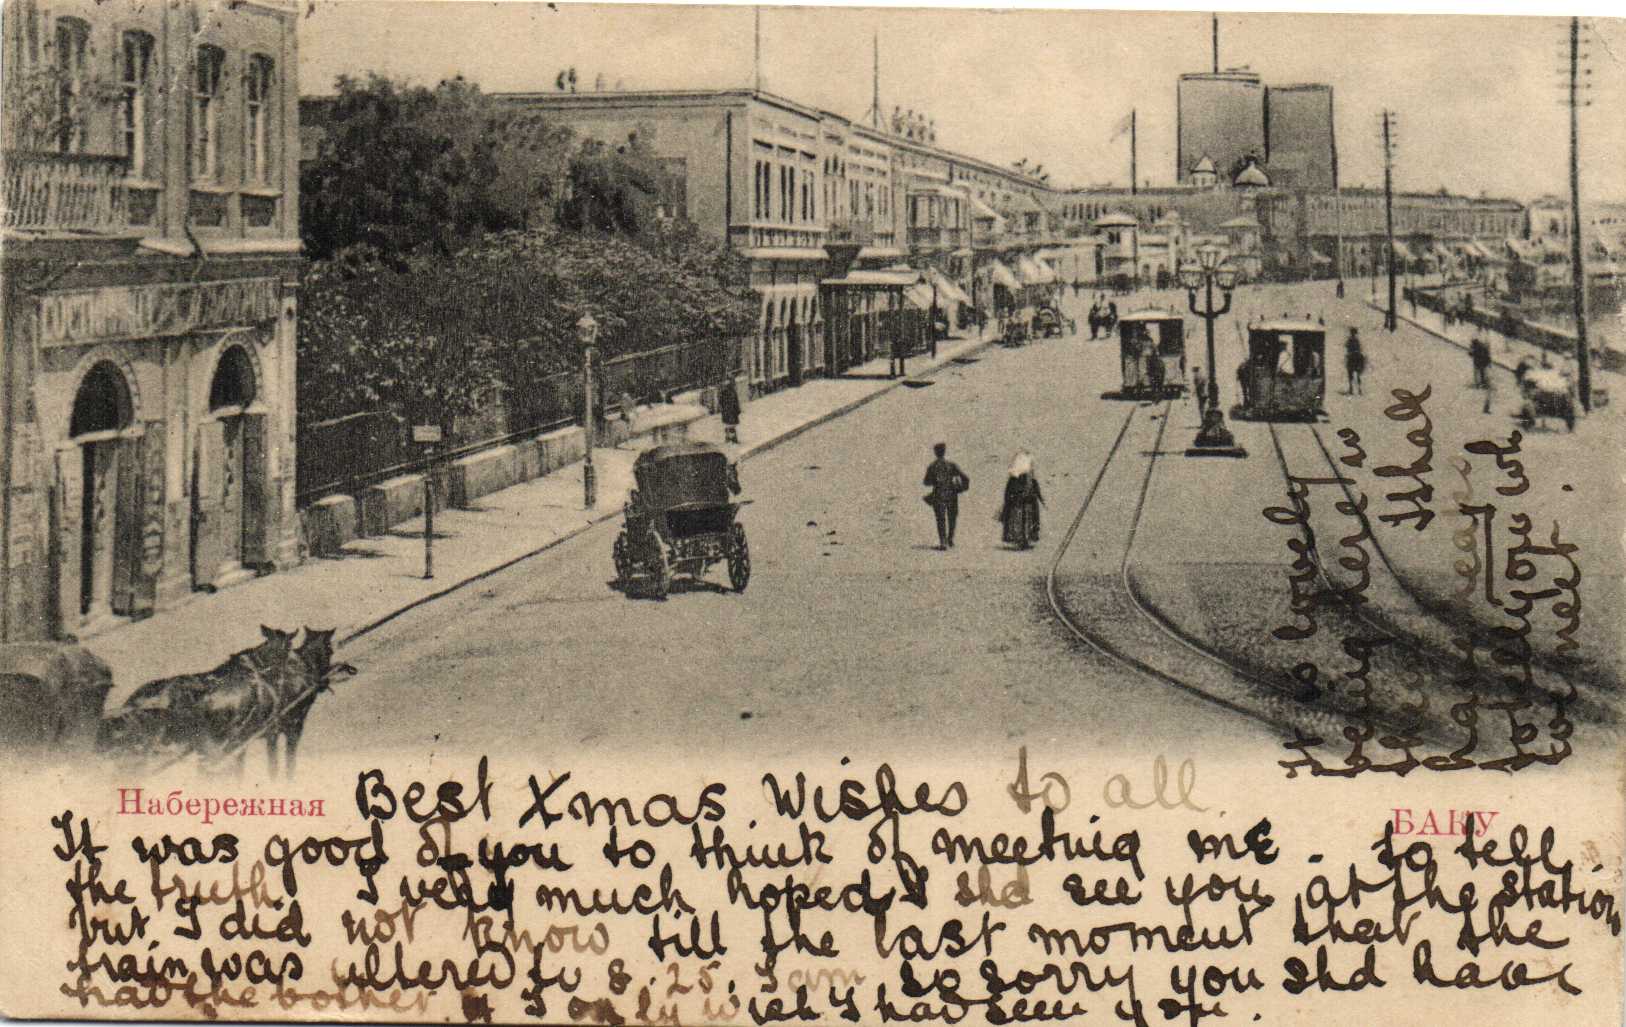 Набережная
БАКУ
Best Xmas Wishes to all
It was good of you to think of meeting me. to tell
the truth I very much hoped I shd see you at the station
but I did not know till the last moment that the
train was altered to 8.25. I am so sorry you shd have
had the bother I only wish I had seen you.
It is lovely
being here
I shall
tell you wh